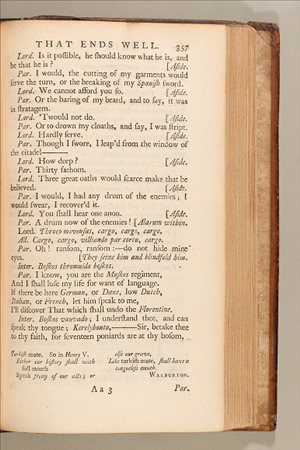 THAT ENDS WELL. 357
Lord. Is it possible, he should know what he is, and
be that he is? [Aside.
Par. I would, the cutting of my garments would
serve the turn, or the breaking of my Spanish sword.
Lord. We cannot afford you so. [Aside.
Par. Or the baring of my beard, and to say, it was
in stratagem.
Lord. 'Twould not do. [Aside.
Par. Or to drown my cloaths, and say, I was stript.
Lord. Hardly serve. [Aside.
Par. Though I swore, I leap'd from the window of
the citadel———
Lord. How deep? [Aside.
Par. Thirty fathom.
Lord. Three great oaths would scarce make that be
believed. [Aside.
Par. I would, I had any drum of the enemies; I
would swear, I recover'd it.
Lord. You shall hear one anon. [Aside.
Par. A drum now of the enemies! [Allarum within.
Lord. Throco movousus, cargo, cargo, cargo.
All. Cargo, cargo, villiando par corvo, cargo.
Par. Oh! ransom, ransom:—do not hide mine
eyes. [They seize him and blindfold him.
Inter. Boskos thromuldo boskos.
Par. I know, you are the Muskos regiment,
And I shall lose my life for want of language.
If there be here German, or Dane, low Dutch,
Italian, or French, let him speak to me,
I'll discover That which shall undo the Florentine.
Inter. Boskos vauvado; I understand thee, and can
speak thy tongue; Kerelybonto,———Sir, betake thee
to thy faith, for seventeen poniards are at thy bosom.
Turkish mute. So in Henry V.
Either our history shall with
full mouth
Speak freely of our acts; or
else our grave,
Like turkish mute, shall have a
tongueless mouth.
WARBURTON.
Aa 3 Par.